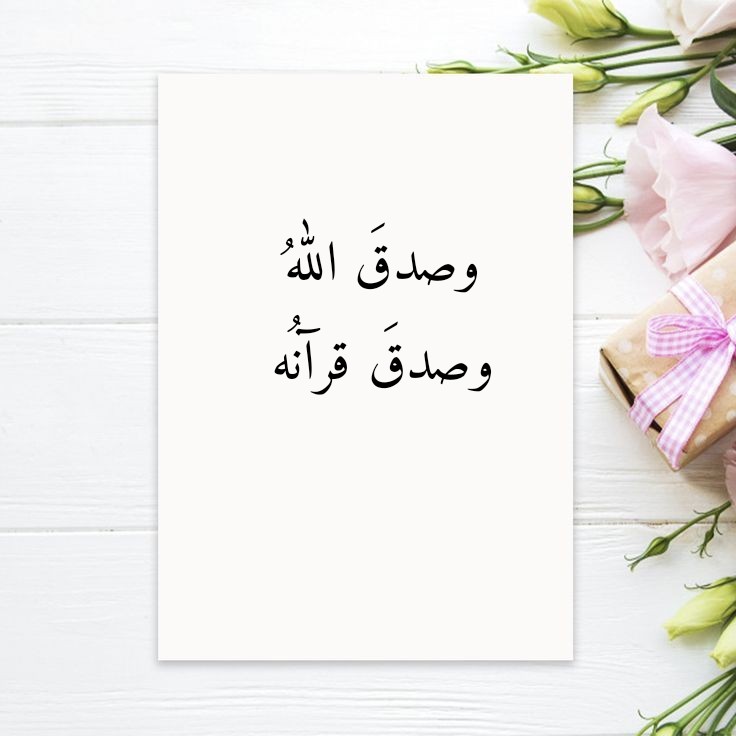 وصدقَ اللهُ
وصدقَ قرآنُه